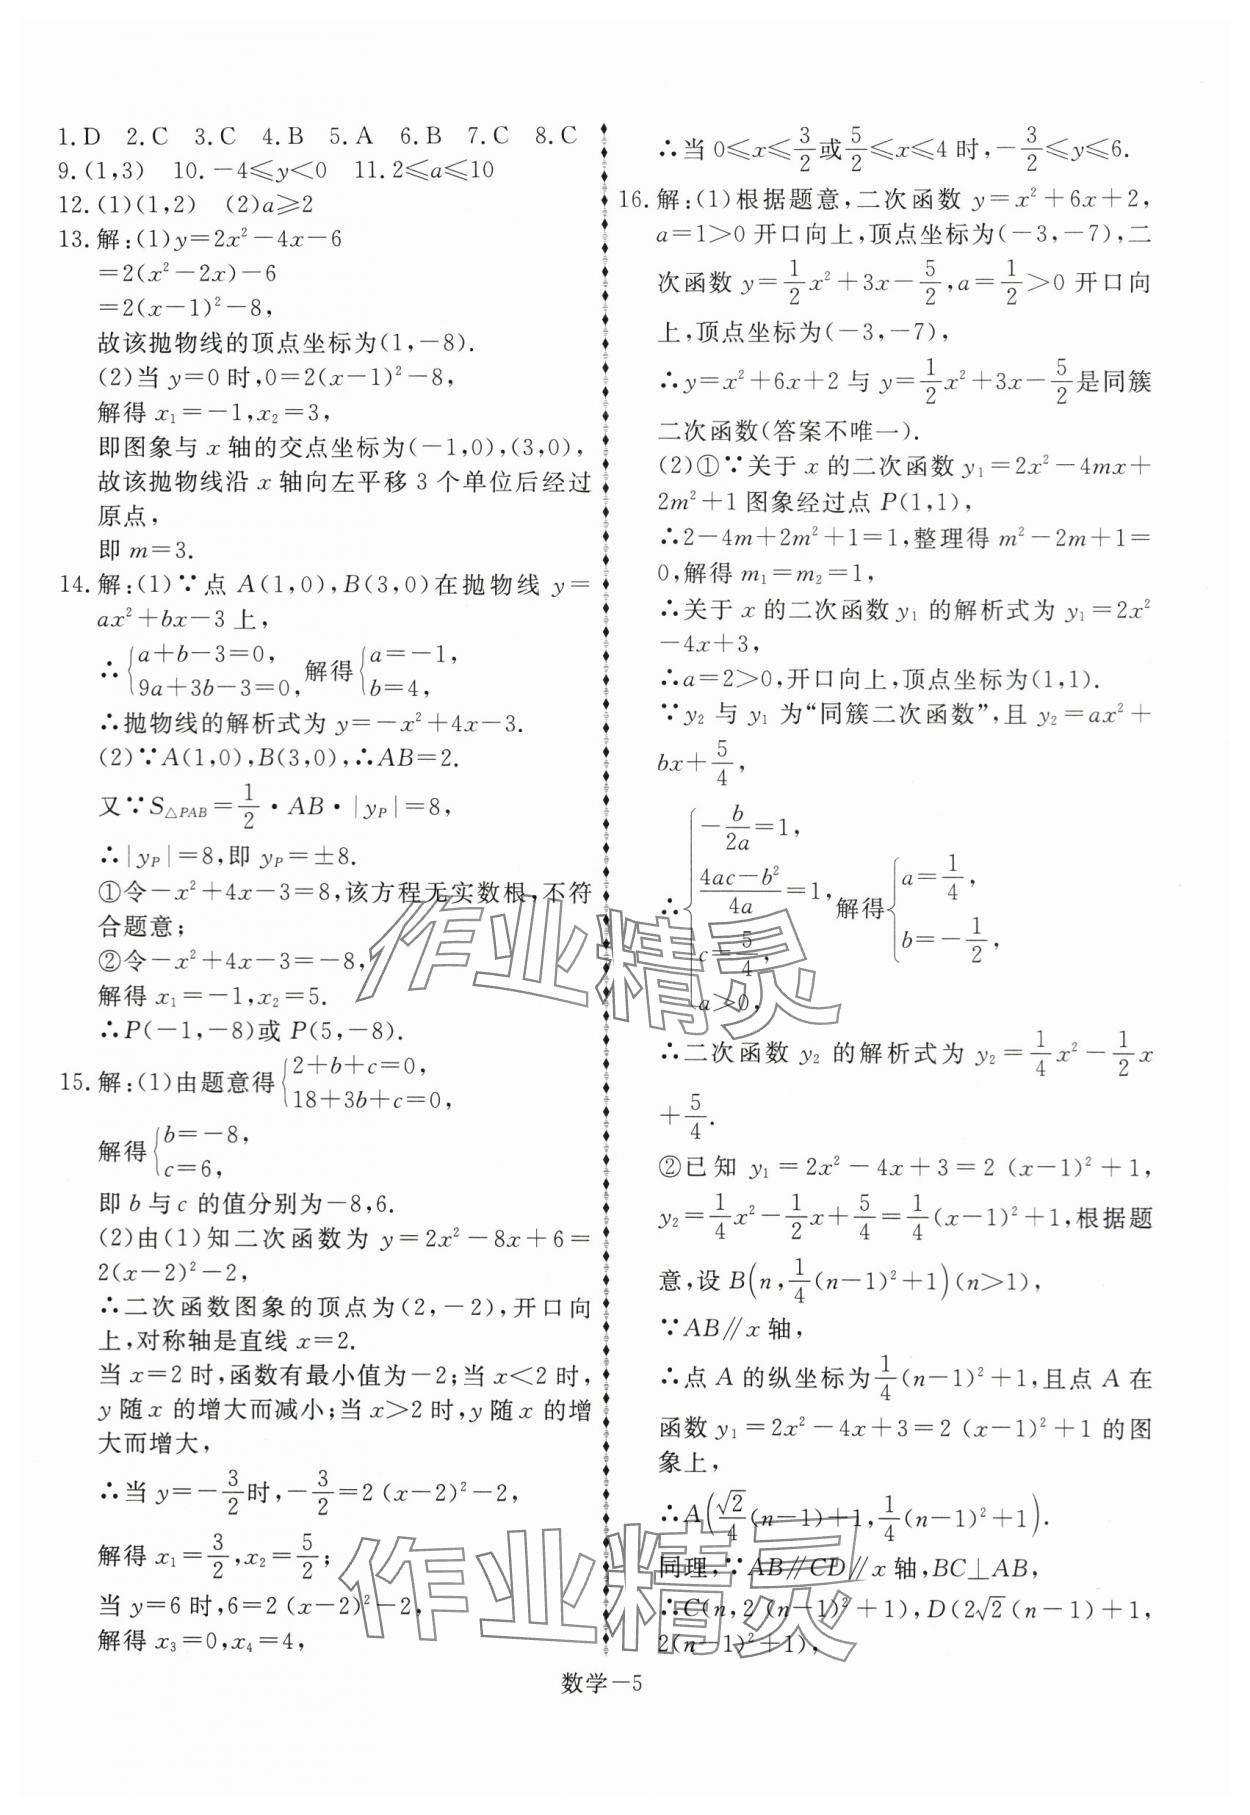 1.D 2.C 3.C 4.B 5.A 6.B 7.C 8.C
9.(1,3) 10.-4≤y<0 11.2≤a≤10
12.(1)(1,2) (2)a≥2
13.解:(1)y=2x²-4x-6
=2(x²-2x)-6
=2(x-1)²-8,
故该抛物线的顶点坐标为(1,-8).
(2)当 y=0 时,0=2(x-1)²-8,
解得 x₁=-1,x₂=3,
即图象与 x 轴的交点坐标为(-1,0),(3,0),
故该抛物线沿 x 轴向左平移 3 个单位后经过
原点,
即 m=3.
14.解:(1)∵点 A(1,0),B(3,0)在抛物线 y=
ax²+bx-3 上,
∴{a+b-3=0, 9a+3b-3=0, 解得{a=-1, b=4,
∴抛物线的解析式为 y=-x²+4x-3.
(2)∵A(1,0),B(3,0),∴AB=2.
又∵S△PAB=1/2·AB·|yP|=8,
∴|yP|=8,即 yP=±8.
①令-x²+4x-3=8,该方程无实数根,不符
合题意;
②令-x²+4x-3=-8,
解得 x₁=-1,x₂=5.
∴P(-1,-8)或 P(5,-8).
15.解:(1)由题意得{2+b+c=0, 18+3b+c=0,
解得{b=-8, c=6,
即 b 与 c 的值分别为-8,6.
(2)由(1)知二次函数为 y=2x²-8x+6=
2(x-2)²-2,
∴二次函数图象的顶点为(2,-2),开口向
上,对称轴是直线 x=2.
当 x=2 时,函数有最小值为-2;当 x<2 时,
y 随 x 的增大而减小;当 x>2 时,y 随 x 的增
大而增大,
∴当 y=-3/2时,-3/2=2(x-2)²-2,
解得 x₁=3/2,x₂=5/2;
当 y=6 时,6=2(x-2)²-2,
解得 x₃=0,x₄=4,
∴当 0≤x≤3/2或5/2≤x≤4 时,-3/2≤y≤6.
16.解:(1)根据题意,二次函数 y=x²+6x+2,
a=1>0 开口向上,顶点坐标为(-3,-7),二
次函数 y=1/2x²+3x-5/2,a=1/2>0 开口向
上,顶点坐标为(-3,-7),
∴y=x²+6x+2 与 y=1/2x²+3x-5/2是同簇
二次函数(答案不唯一).
(2)①∵关于 x 的二次函数 y₁=2x²-4mx+
2m²+1 图象经过点 P(1,1),
∴2-4m+2m²+1=1,整理得 m²-2m+1=
0,解得 m₁=m₂=1,
∴关于 x 的二次函数 y₁ 的解析式为 y₁=2x²
-4x+3,
∴a=2>0,开口向上,顶点坐标为(1,1).
∵y₂ 与 y₁ 为“同簇二次函数”,且 y₂=ax²+
bx+5/4,
∴{-b/2a=1, (4ac-b²)/4a=1, c=5/4, a>0, 解得{a=1/4, b=-1/2,
∴二次函数 y₂ 的解析式为 y₂=1/4x²-1/2x
+5/4.
②已知 y₁=2x²-4x+3=2(x-1)²+1,
y₂=1/4x²-1/2x+5/4=1/4(x-1)²+1,根据题
意,设 B(n,1/4(n-1)²+1)(n>1),
∵AB∥x 轴,
∴点 A 的纵坐标为1/4(n-1)²+1,且点 A 在
函数 y₁=2x²-4x+3=2(x-1)²+1 的图
象上,
∴A(√2/4(n-1)+1,1/4(n-1)²+1).
同理,∵AB∥CD∥x 轴,BC⊥AB,
∴C(n,2(n-1)²+1),D(2√2(n-1)+1,
2(n-1)²+1),
数学-5
作业精灵
作业精灵